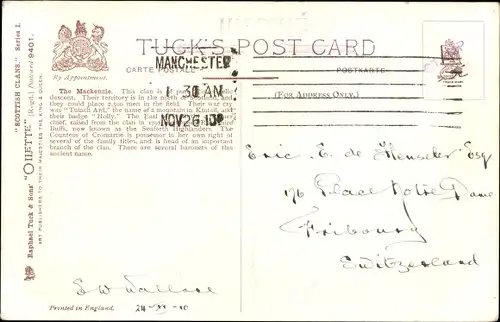 TUCK'S POST CARD
By Appointment.
CARTE POSTALE
POSTKARTE
(FOR ADDRESS ONLY.)
MANCHESTER
1 30 AM
NOV 26 10
The Mackenzie. This clan is of
descent. Their territory is in the north of
could place 2,500 men in the field. Their war cry
was "Tulach Ard," the name of a mountain in Kintail, and
their badge "Holly." The Earl
raised from the clan in
Buffs, now known as the Seaforth Highlanders. The
Countess of Cromartie is possessor in her own right of
several of the family titles, and is head of an important
branch of the clan. There are several baronies of this
ancient name.
Raphael Tuck & Sons' "OILETTE" [Regd.] Postcard 9401.
"SCOTTISH CLANS." Series I.
ART PUBLISHERS TO THEIR MAJESTIES THE KING & QUEEN.
Eric. E. de Henseler Esq
176 Place Notre Dame
Fribourg
Switzerland
E W Wallace
Printed in England.
24-XI-10